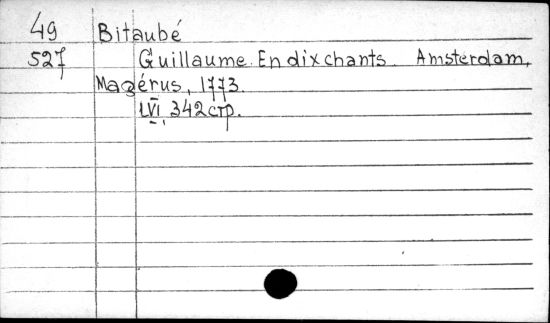 49 Bitaubé
527 Guillaume. En dix chants. Amsterdam,
Magérus, 1773.
LVI, 342 стр.